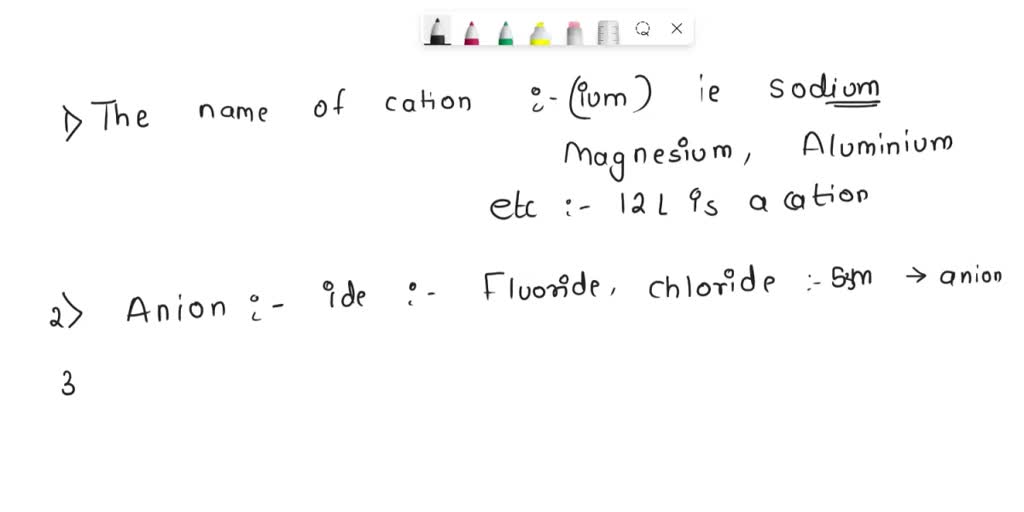 1) The name of cation :- (ium) ie sodium
Magnesium, Aluminium
etc :- 12L is a cation
2) Anion :- ide :- Fluoride, chloride :- 5ym → anion
3